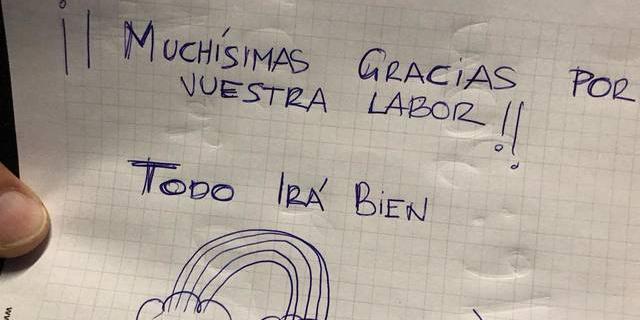 ¡¡ MUCHÍSIMAS GRACIAS POR
VUESTRA LABOR!!
TODO IRÁ BIEN